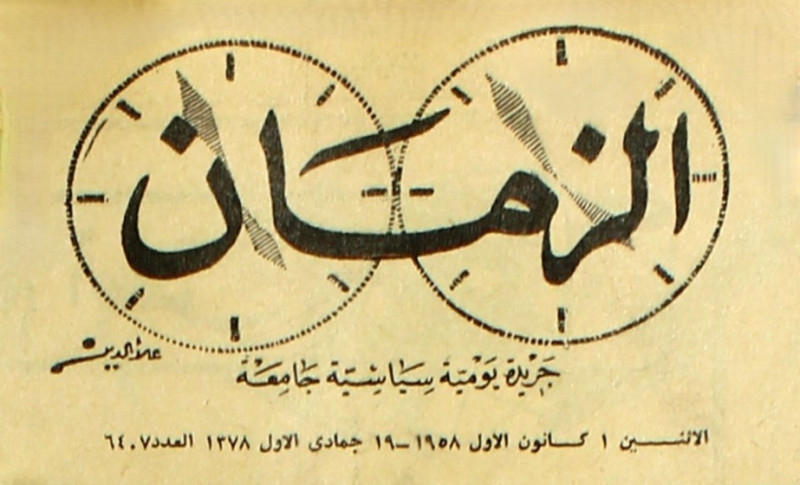 الزمان
علاء الدين
جَريْدة يَوْميّة سِيَاسِيّة جَامِعَة
الاثنين ١ كانون الاول ١٩٥٨ – ١٩ جمادى الاول ١٣٧٨ العدد ٦٤٠٧